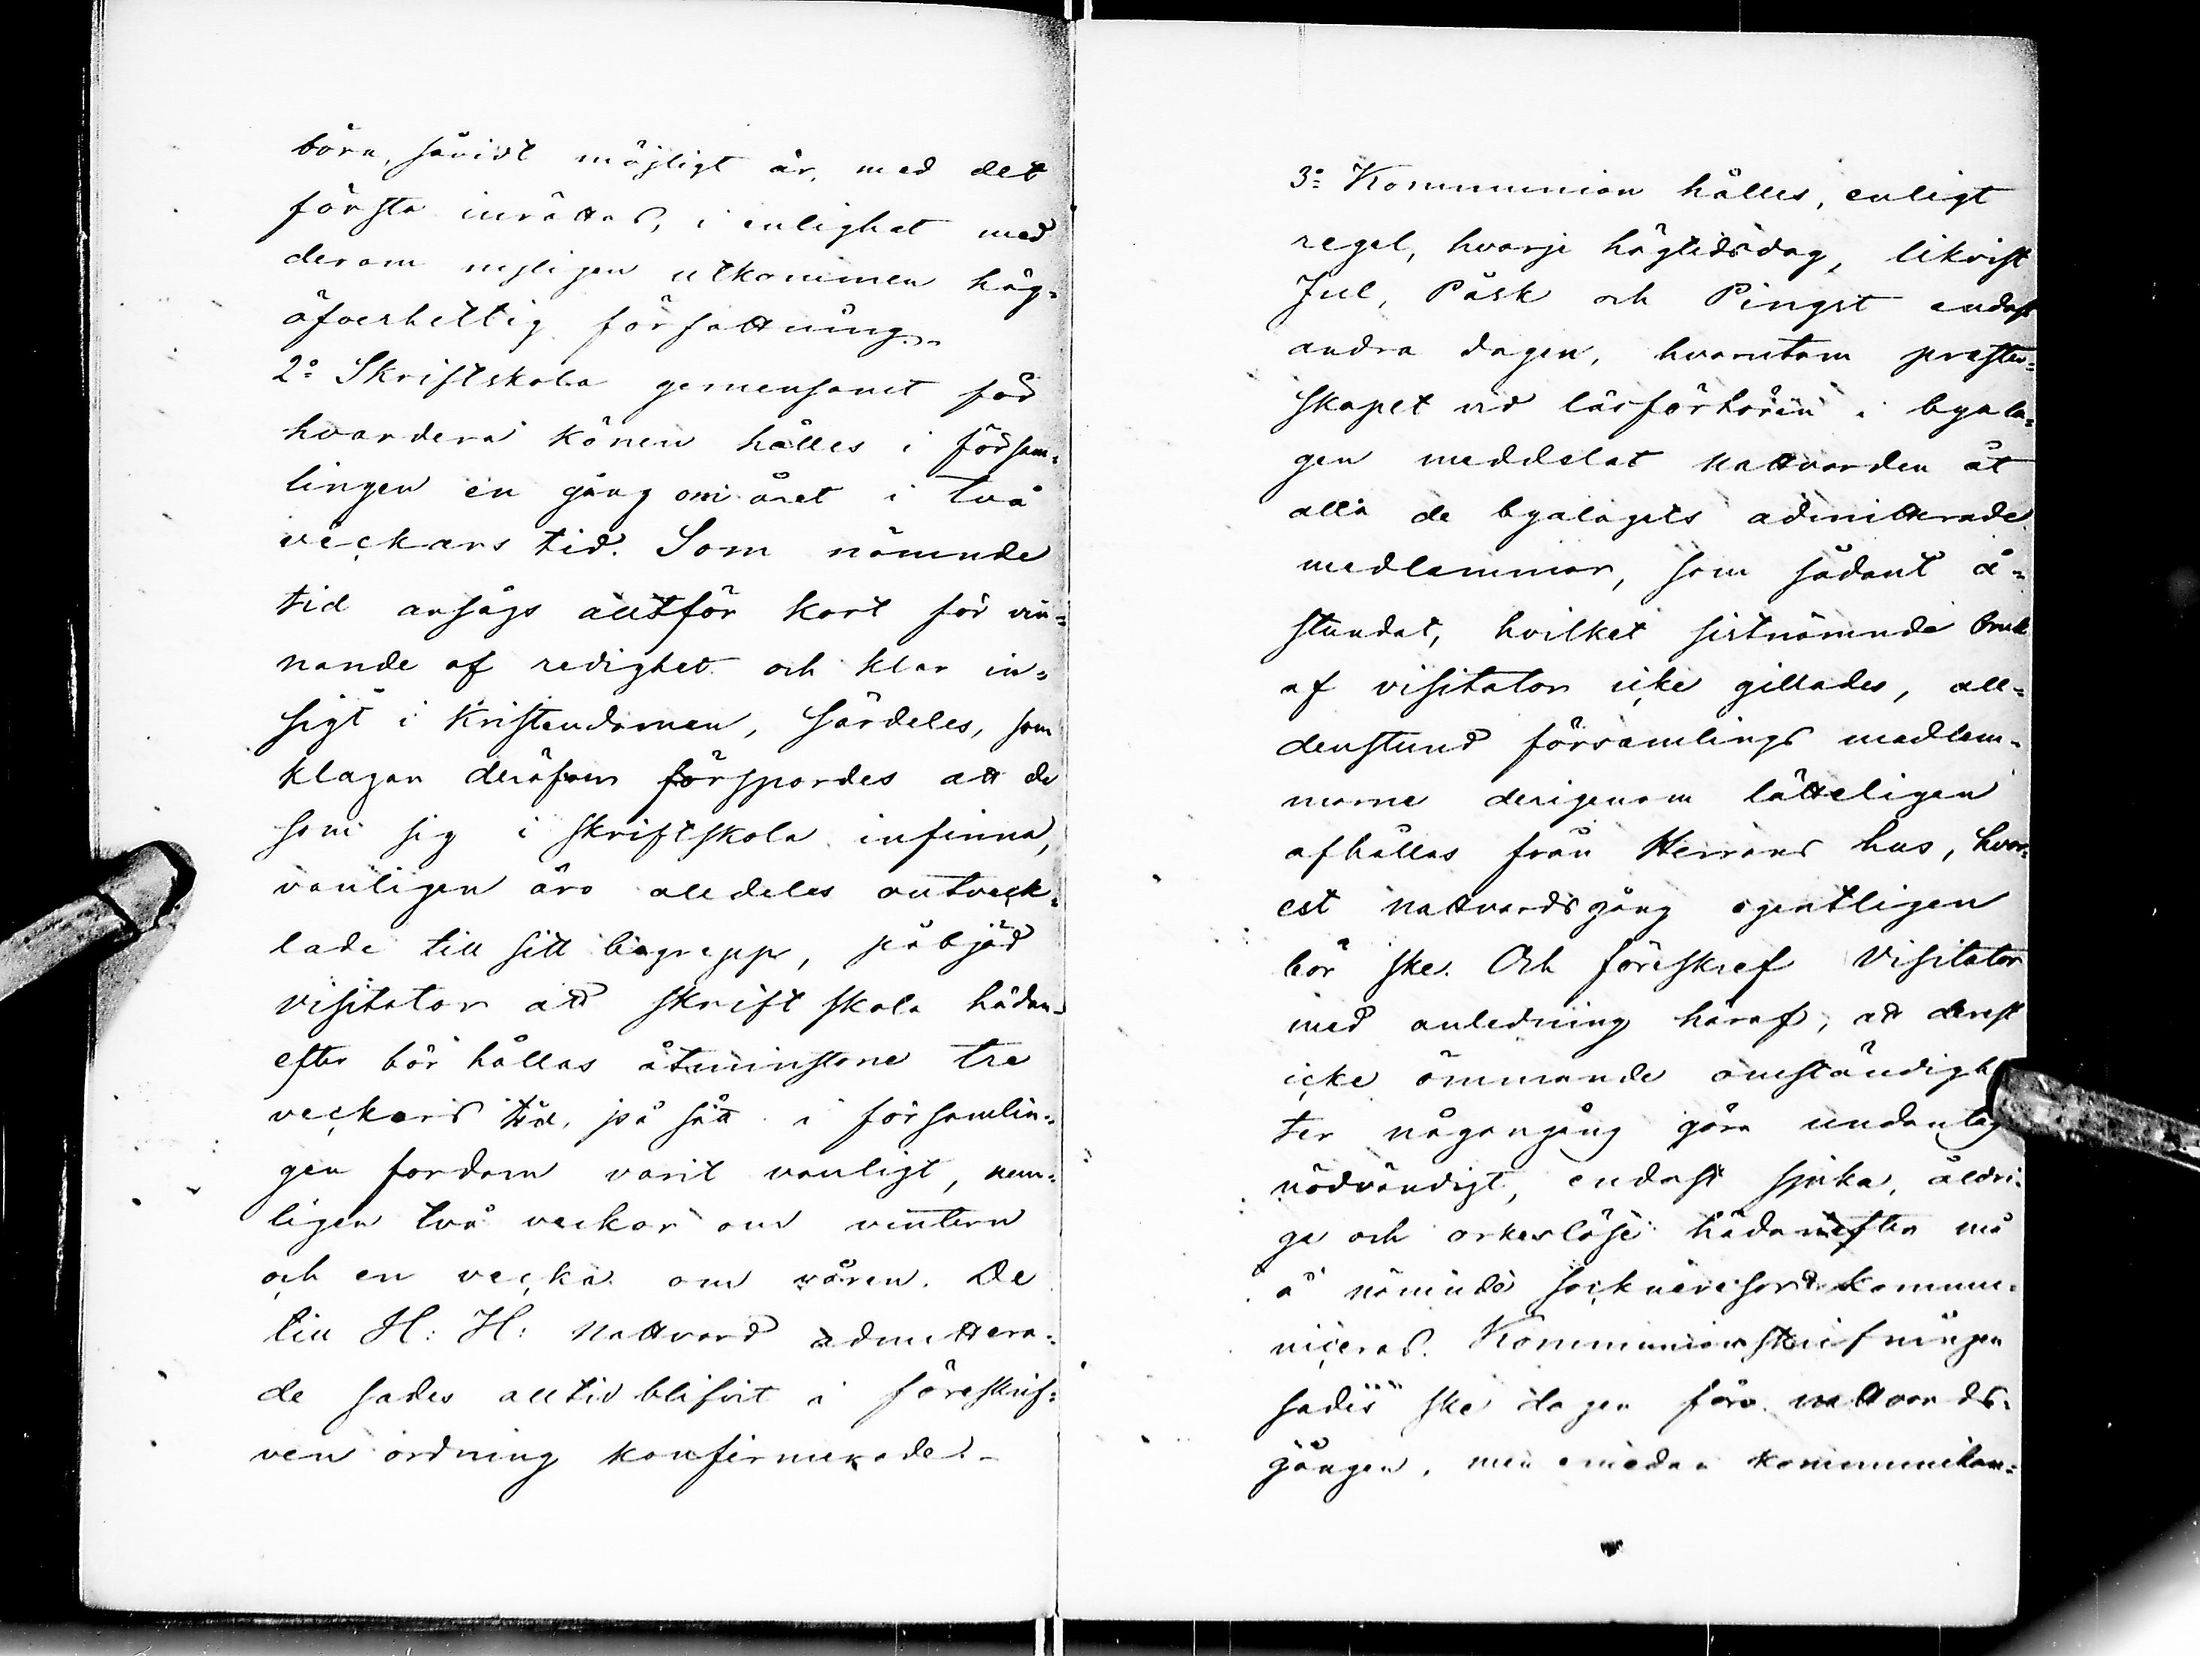 böra, såvidt möjligt är, med det
första inrättas, i enlighet med
derom nyligen utkommen hög-
öfverhetlig författning.
2:o Skriftskola gemensamt för
hvardera könen hålles i försam-
lingen en gång om året i två
veckors tid. Som nämnde
tid ansågs alltför kort för vin-
nande af redighet och klar in-
sigt i Kristendomen, särdeles, som
klagan deröfver försporдes att de
som sig i skriftskola infinna,
vanligen äro alldeles outveck-
lade till sitt begrepp, påbjöd
visitator att skriftskola hädan-
efter bör hållas åtminstone tre
veckors tid, på sätt i församlin-
gen fordom varit vanligt, nem-
ligen två veckor om vintern
och en vecka om våren. De
till H: H: Nattvard admittera-
de sades alltid blifvit i föreskrif-
ven ordning konfirmerade.
3:o Kommunion hålles, enligt
regel, hvarje högtidsdag, likväl
Jul, Påsk och Pingst endast
andra dagen, hvarutom prester-
skapet vid läsförhören i byala-
gen meddelat nattvarden åt
alla de byalagets admitterade
medlemmar, som sådant å-
stundat, hvilket sistnämnde bruk
af visitator icke gillades, all-
denstund församlings medlem-
marne derigenom lätteligen
afhållas från Herrans hus, hvar-
est nattvardsgång egentligen
bör ske. Och föreskref Visitator
med anledning häraf, att derest
icke ömmande omständighe
ter någongång göra undantag
nödvändigt, endast sjuka, åldri-
ga och orkeslöse hädanefter må
å nämnde socknеresor kommu-
niceras. Kommunionskrifningen
sades ske dagen före nattvards-
gången, men emedan kommunikan-